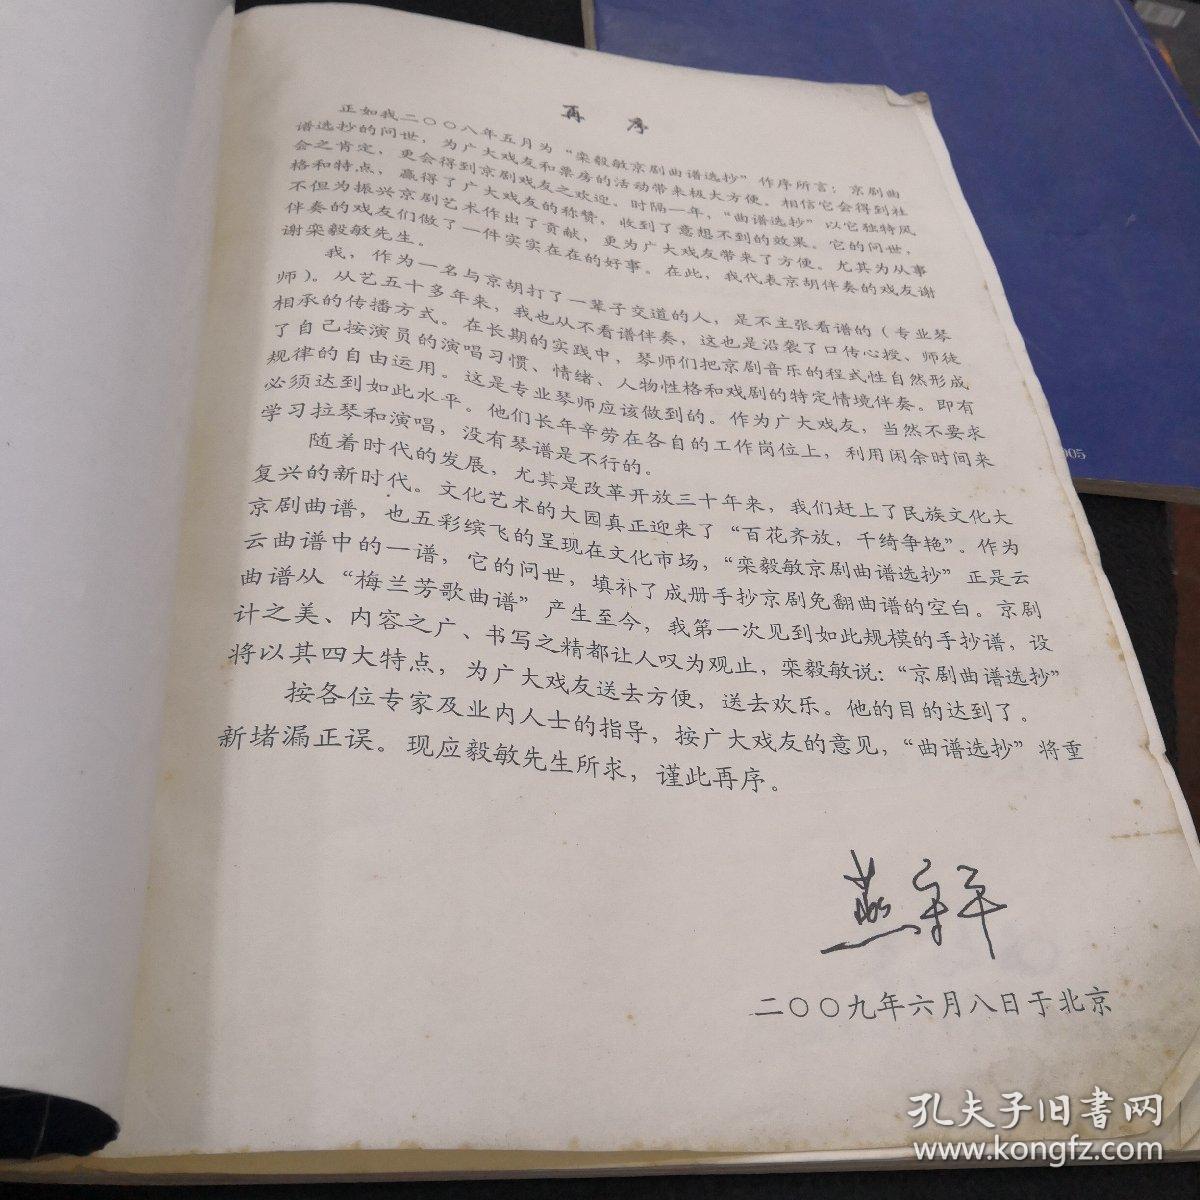 再 序
正如我二〇〇八年五月为“栾毅敏京剧曲谱选抄”作序所言：京剧曲
谱选抄的问世，为广大戏友和票房的活动带来极大方便。相信它会得到社
会之肯定，更会得到京剧戏友之欢迎。时隔一年，“曲谱选抄”以它独特风
格和特点，赢得了广大戏友的称赞，收到了意想不到的效果。它的问世，
不但为振兴京剧艺术作出了贡献，更为广大戏友带来了方便。尤其为从事
伴奏的戏友们做了一件实实在在的好事。在此，我代表京胡伴奏的戏友谢
谢栾毅敏先生。
我，作为一名与京胡打了一辈子交道的人，是不主张看谱的（专业琴
师）。从艺五十多年来，我也从不看谱伴奏，这也是沿袭了口传心授、师徒
相承的传播方式。在长期的实践中，琴师们把京剧音乐的程式性自然形成
了自己按演员的演唱习惯、情绪、人物性格和戏剧的特定情境伴奏。即有
规律的自由运用。这是专业琴师应该做到的。作为广大戏友，当然不要求
必须达到如此水平。他们长年辛劳在各自的工作岗位上，利用闲余时间来
学习拉琴和演唱，没有琴谱是不行的。
随着时代的发展，尤其是改革开放三十年来，我们赶上了民族文化大
复兴的新时代。文化艺术的大园真正迎来了“百花齐放，千绮争艳”。作为
京剧曲谱，也五彩缤飞的呈现在文化市场，“栾毅敏京剧曲谱选抄”正是云
云曲谱中的一谱，它的问世，填补了成册手抄京剧免翻曲谱的空白。京剧
曲谱从“梅兰芳歌曲谱”产生至今，我第一次见到如此规模的手抄谱，设
计之美、内容之广、书写之精都让人叹为观止，栾毅敏说：“京剧曲谱选抄”
将以其四大特点，为广大戏友送去方便，送去欢乐。他的目的达到了。
按各位专家及业内人士的指导，按广大戏友的意见，“曲谱选抄”将重
新堵漏正误。现应毅敏先生所求，谨此再序。
二〇〇九年六月八日于北京
005
孔夫子旧书网
www.kongfz.com